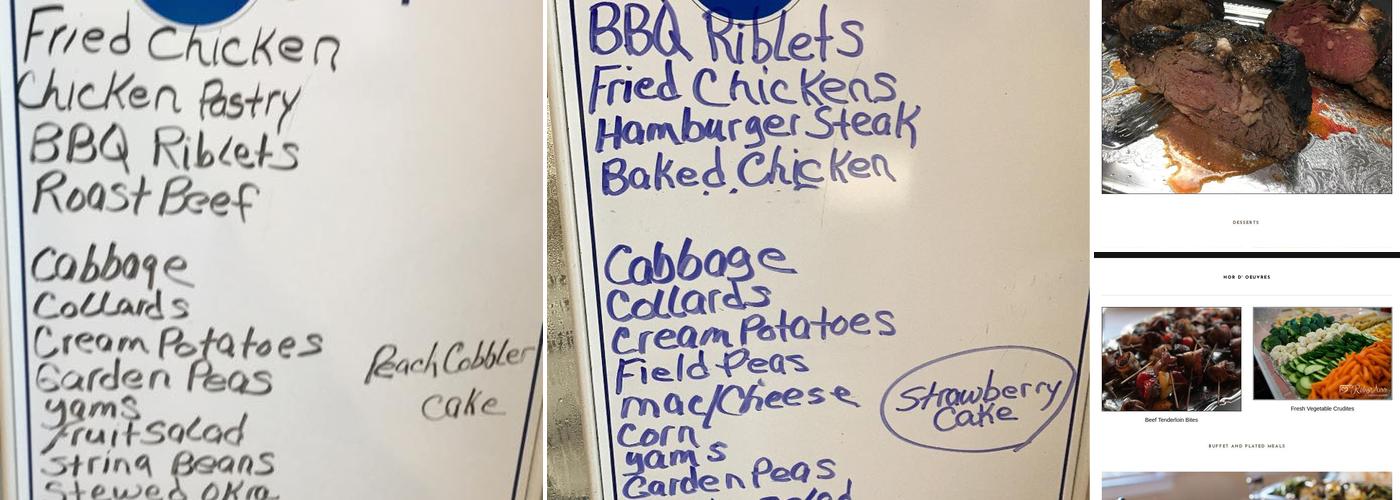 Fried Chicken
Chicken Pastry
BBQ Riblets
Roast Beef
Cabbage
Collards
Cream Potatoes
Garden Peas
yams
Fruit Salad
String Beans
Stewed Okra
Peach Cobbler
Cake
BBQ Riblets
Fried Chickens
Hamburger Steak
Baked Chicken
Cabbage
Collards
Cream Potatoes
Field Peas
mac/Cheese
Corn
yams
Garden Peas
Salad
Strawberry
Cake
DESSERTS
HOR D' OEUVRES
Beef Tenderloin Bites
Fresh Vegetable Crudites
BUFFET AND PLATED MEALS